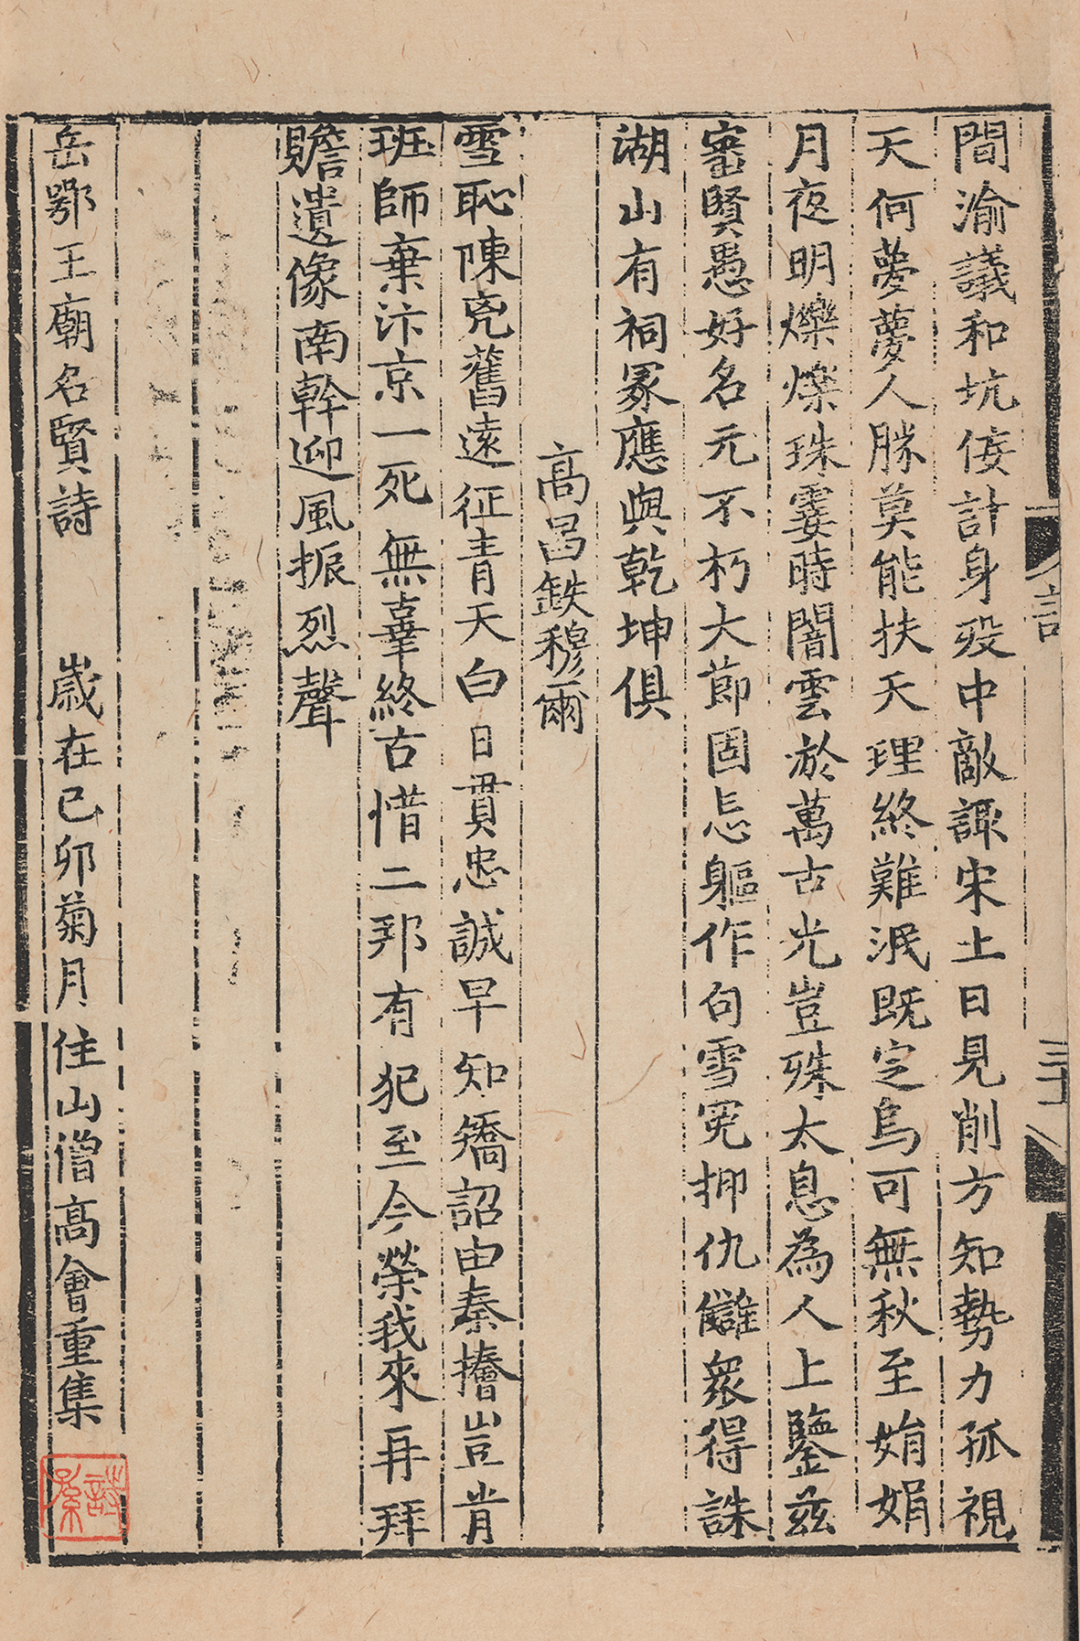 詩
三十
間渝議和坑侫計身歿中敵諏宋土日見削方知勢力孤視
天何夢夢人勝莫能扶天理終難泯既定烏可無秋至娟娟
月夜明爍爍珠霎時闇雲於萬古光豈殊太息為人上鑒茲
審賢愚好名元不朽大節固忘軀作句雪冤抑仇讎衆得誅
湖山有祠冢應與乾坤俱
高昌鉄穆爾
雪恥陳兗舊遠征青天白日貫忠誠早知矯詔由秦擔豈肯
班師棄汴京一死無辜終古惜二邦有犯至今榮我來再拜
瞻遺像南幹迎風振烈聲
岳鄂王廟名賢詩 歲在己卯菊月住山僧高會重集